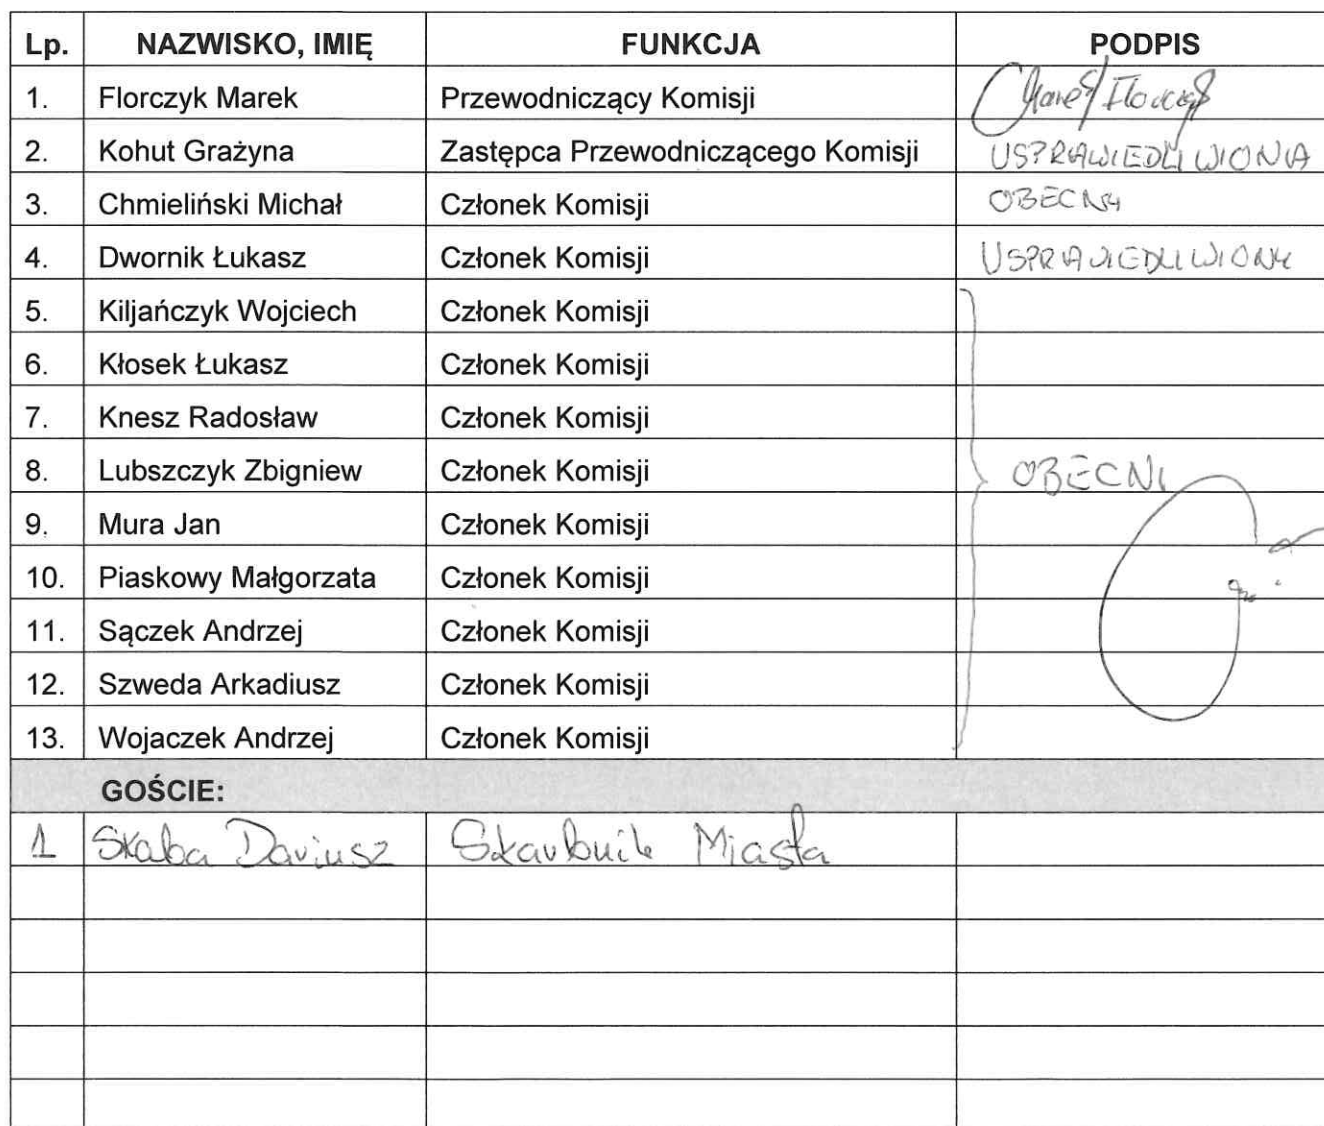 Lp. NAZWISKO, IMIĘ FUNKCJA PODPIS
1. Florczyk Marek Przewodniczący Komisji Marek Florczyk
2. Kohut Grażyna Zastępca Przewodniczącego Komisji USPRAWIEDLIWIONA
3. Chmieliński Michał Członek Komisji OBECNY
4. Dwornik Łukasz Członek Komisji USPRAWIEDLIWIONY
5. Kiljańczyk Wojciech Członek Komisji
6. Kłosek Łukasz Członek Komisji
7. Knesz Radosław Członek Komisji
8. Lubszczyk Zbigniew Członek Komisji OBECNI
9. Mura Jan Członek Komisji
10. Piaskowy Małgorzata Członek Komisji
11. Sączek Andrzej Członek Komisji
12. Szweda Arkadiusz Członek Komisji
13. Wojaczek Andrzej Członek Komisji
GOŚCIE:
1 Skaba Dariusz Skarbnik Miasta